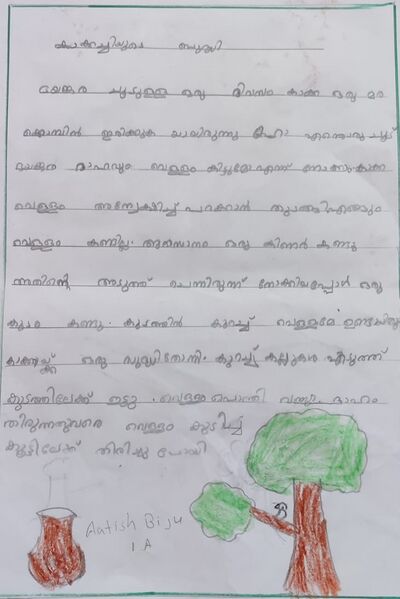 കാക്കച്ചിയുടെ ബുദ്ധി
ഭയങ്കര ചൂടുള്ള ഒരു ദിവസം കാക്ക ഒരു മര
ക്കൊമ്പിൽ ഇരിക്കുക യായിരുന്നു ഹോ എന്തൊരു ചൂട്
ഭയങ്കര ദാഹവും വെള്ളം കിട്ടുമോ എന്ന് നോക്കാം കാക്ക
വെള്ളം അന്വേഷിച്ച് പറക്കാൻ തുടങ്ങി എങ്ങും
വെള്ളം കണ്ടില്ല. അവസാനം ഒരു കിണർ കണ്ടു
അതിന്റെ അടുത്ത് ചെന്നിരുന്ന് നോക്കിയപ്പോൾ ഒരു
കൂടം കണ്ടു. കുടത്തിൽ കുറച്ച് വെള്ളമേ ഉണ്ടായിരു
കാക്കയ്ക്ക് ഒരു ബുദ്ധി തോന്നി. കുറച്ച് കല്ലുകൾ എടുത്ത്
കുടത്തിലേക്ക് ഇട്ടു. വെള്ളം പൊന്തി വന്നു. ദാഹം
തീരുന്നതുവരെ വെള്ളം കുടിച്ച്
കൂട്ടിലേക്ക് തിരിച്ചു പോയി
Aatish Biju
1 A